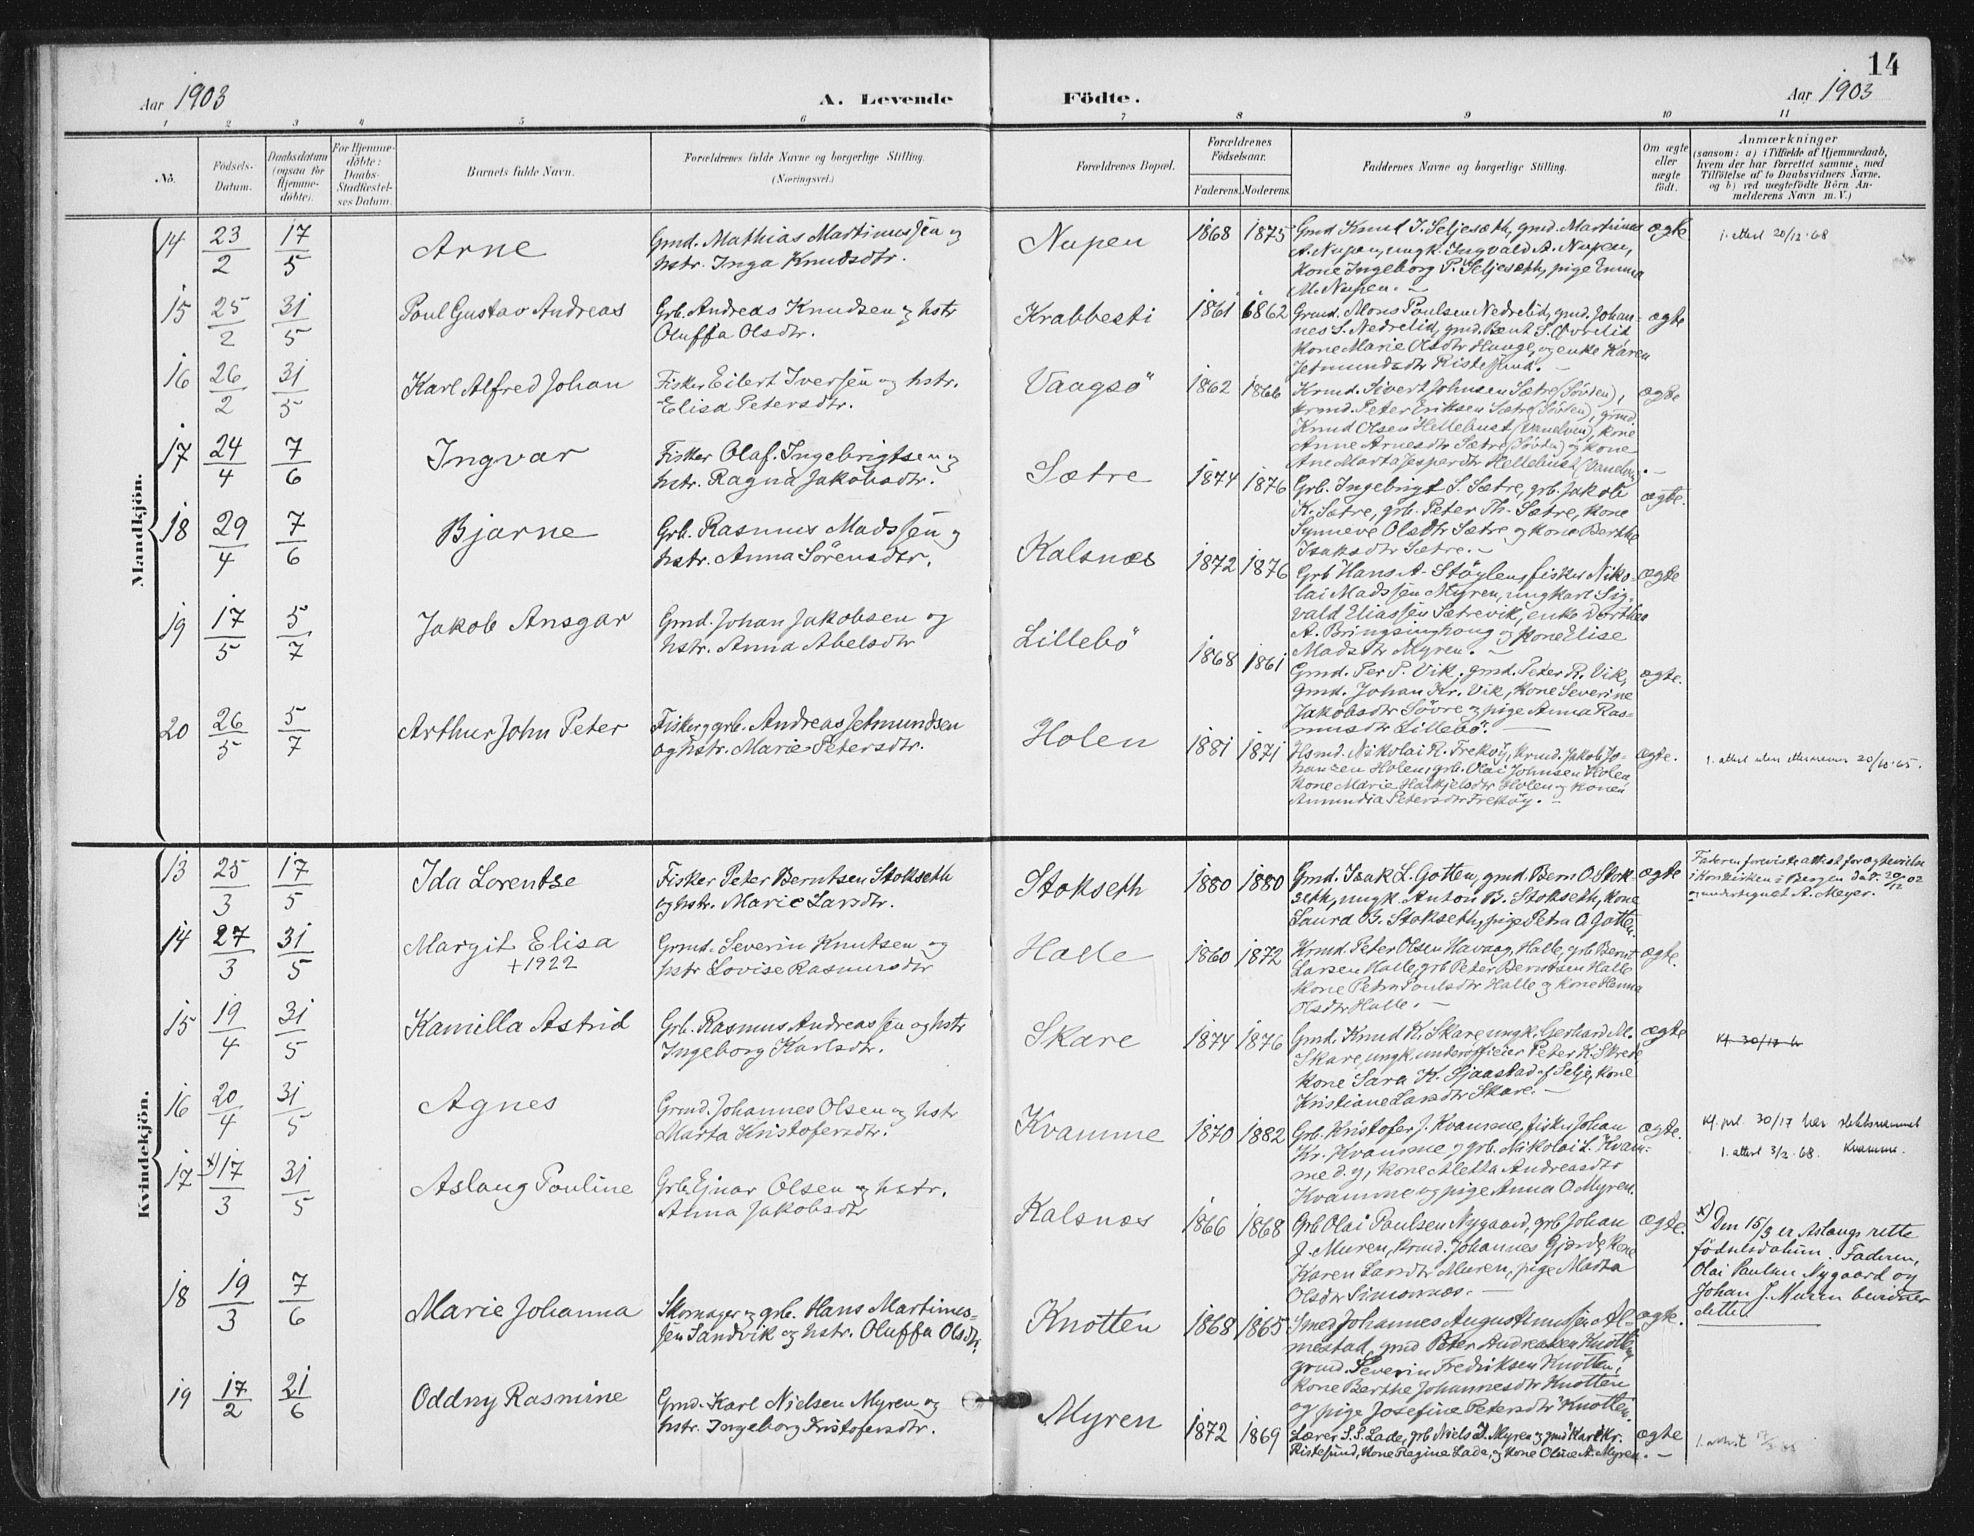 14
Aar 1903
A. Levende
Födte.
Aar 1903
1 2 3 4 5 6 7 8 9 10 11
No.
Födsels-Datum.
Daabsdatum (ogsaa for Hjemme-döbte).
For Hjemme-döbte: Daabs-Stadfæstel-ses Datum.
Barnets fulde Navn.
Forældrenes fulde Navne og borgerlige Stilling.
(Næringsvei.)
Forældrenes Bopæl.
Forældrenes Födselsaar.
Faderens. Moderens.
Faddernes Navne og borgerlige Stilling.
Om ægte eller uægte födt.
Anmærkninger
(saasom: a) i Tilfælde af Hjemmedaab,
hvem der har forrettet samme, med
Tilföielse af to Daabsvidners Navne.
og b) ved uægtefödte Börn An-
melderens Navn m. V.)
Mandkjön.
14 23/2 17/5 Arne
Gmd. Mathias Martinussen og
hstr. Inga Knudsdtr.
Nupen 1868 1875
Gmd Knud J. Seljeseth, gmd. Martinus
A. Nupen, ungk. Ingvald A. Nupen,
kone Ingeborg P. Seljeseth, pige Emma
M. Nupen.
ægte
1. attest 20/12-68
15 25/2 31/5 Poul Gustav Andreas
Grb. Andreas Knudsen og hstr
Oluffa Olsdtr.
Krabbesti 1861 1862
Grmd. Mons Paulsen Nedrelid, gmd. Johan-
nes S. Nedrelid, gmd. Bent S. Øvrelid
kone Marie Olsdtr Hauge, og enke Karen
Jetmundsdtr Ristesund.
ægte
16 26/2 31/5 Karl Alfred Johan
Fisker Eilert Iversen og hstr.
Elisa Petersdtr.
Vaagsö 1862 1866
Krmd. Sivert Johnsen Sætre (Sövden),
krmd. Peter Eriksen Sætre (Sövden), grmd.
Knud Olsen Hellebust (Vanelven), kone
Anne Arnesdtr Sætre (Sövden) og kone
Ane Marta Jesperdtr Hellebust (Vanelven).
ægte
17 24/4 7/6 Ingvar
Fisker Olaf Ingebrigtsen og
hstr. Ragna Jakobsdtr.
Sætre 1874 1876
Grb. Ingebrigt S. Sætre, grb. Jakob
K. Sætre, grb. Peter Th. Sætre, kone
Synneve Olsdtr Sætre og kone Berthe
Isaksdtr Sætre.
ægte.
18 29/4 7/6 Bjarne
Grb. Rasmus Madssen og
hstr. Anna Sörensdtr.
Kalsnæs 1872 1876
Grb Hans A. Støylen, fisker Niko-
lai Madssen Myren, ungkarl Sig-
vald Eliassen Sætrevik, enke Dorthea
A. Bringsinghaug og kone Elise
Madsdtr Myren.
ægte
19 17/5 5/7 Jakob Ansgar
Gmd. Johan Jakobsen og
hstr. Anna Abelsdtr
Lillebö 1868 1861
Gmd. Per P. Vik, gmd. Peter R. Vik,
Gmd. Johan Kr. Vik, kone Severine
Jakobsdtr Sövre og pige Anna Ras-
musdtr Lillebö.
ægte.
20 26/5 5/7 Arthur John Peter
Fisker og grb. Andreas Jetmundsen
og hstr. Marie Petersdtr.
Holen 1881 1871
Hsmd. Nikolai R. Frekøy, krmd. Jakob Jo-
hansen Holen, grb. Olai Johnsen Holen
kone Marie Halkjelsdtr Holen og kone
Amundia Petersdtr Frekøy.
ægte.
1. attest uten 20/10-65.
Kvindekjön.
13 25/3 17/5 Ida Lorentse
Fisker Peter Berntsen Stokseth
og hstr. Marie Larsdtr.
Stokseth 1880 1880
Gmd. Isak L. Gotten, gmd. Bern. O. Stok-
seth, ungk. Anton B. Stokseth, kone
Laura B. Stokseth, pige Petra O. Gotten.
ægte
Faderen foreviste attest for ægtevielse
i Korskirken i Bergen dat. 20/12 02
og undertegnet A. Meyer.
14 27/3 31/5 Margit Elisa
+1922
Grmd. Severin Knutsen og
hstr Lovise Rasmusdtr
Halle 1860 1872
Krmd. Peter Olsen Havaag, Halle, grb. Bernt
Larsen Halle, grb Peter Berntsen Halle
kone Petra Paulsdtr Halle og kone Hanna
Olsdtr Halle.
ægte.
15 19/4 31/5 Kamilla Astrid
Grb. Rasmus Andreassen og hstr
Ingeborg Karlsdtr.
Skare 1874 1876
Gmd. Knud K. Skare, ungk. Gerhard M.
Skare, ungk. underofficier Peter K. Skrede
kone Sara K. Sjaastad af Selje, kone
Kristiane Larsdtr Skare.
ægte
16 20/4 31/5 Agnes
Grmd. Johannes Olsen og hstr
Marta Kristofersdtr.
Kvamme 1870 1882
Grb. Kristofer J. Kvamme, fisker Johan
Kr. Kvamme, grb. Nikolai L. Kvam-
me d.y., kone Aletta Andreasdtr
Kvamme og pige Anna O. Myren.
ægte.
Kf. prl. 30/17 har slektsnavnet
1. attest 3/2-68. Kvamme.
17 x) 17/3 31/5 Aslaug Pauline
Grb. Ejnar Olsen og hstr.
Anna Jakobsdtr
Kalsnæs 1866 1868
Grb Olai Paulsen Nygaard, grb Johan
J. Muren, krmd. Johannes Gjærde, kone
Karen Larsdtr Muren, pige Marta
Olsdtr Simonnæs.
ægte.
x) Den 15/3 er Aslaugs rette
fødselsdatum. Faderen,
Olai Paulsen Nygaard og
Johan J. Muren bevidner
dette.
18 19/3 7/6 Marie Johanna
Skomager og grb. Hans Martinus-
sen Sandvik og hstr. Oluffa Olsdtr.
Knotten 1868 1865
Smed Johannes Augustinussen Al-
mestad, gmd Peter Andreasen Knotten,
grmd. Severin Fredriksen Knotten,
kone Berthe Johannesdtr Knotten
og pige Josefine Petersdtr Knotten.
ægte.
19 17/2 21/6 Oddny Rasmine
Gmd. Karl Nielsen Myren og
hstr. Ingeborg Kristofersdtr.
Myren 1872 1869
Lærer S. S. Lade, grb Niels J. Myren og gmd Karl Kr.
Ristesund, kone Ragine Lade, og kone Oline A. Myren.
ægte